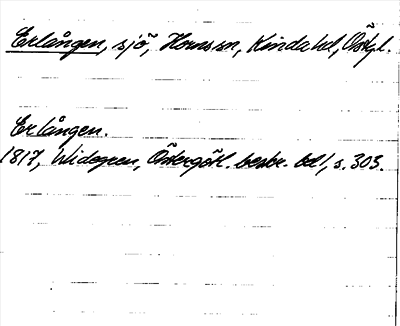 Erlången, sjö, Horns sn, Kinda hd, Östgl.
Erlången.
1817, Widegren, Östergötl. beskr. bd 1, s. 303.